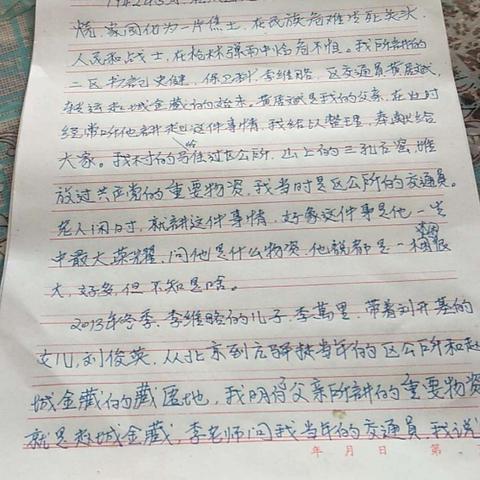 烧, 家园化为一片焦土, 在民族危难生死关头,
人民和战士, 在枪林弹雨中恪居不惧。我所讲的
二区书记史健, 保卫科李维略, 区交通员黄居斌,
转运赵城金藏的始末。黄居斌是我的父亲, 在世时
经常听他讲起这件事情, 我给以整理, 奉献给
大家。我村的曾住过区公所, 山上的三孔石窑, 堆
放过共产党的重要物资, 我当时是区公所的交通员。
老人闲时, 就讲这件事情, 好象这件事是他一生
中最大荣耀, 问他是什么物资, 他说都是一捆很
大, 好多, 但不知是啥。
2013年冬季, 李维略的儿子, 李万里, 带着刘开基的
女儿, 刘俊英, 从北京到石驿找当年的区公所和赵
城金藏的藏匿地, 我明白父亲所讲的重要物资
就是赵城金藏, 李老师问我当年的交通员, 我说
年 月 日 第